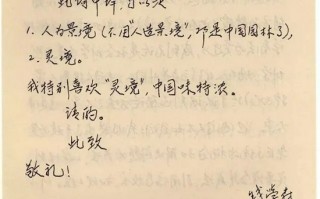 中译，可以是
1. 人为景境（不用“人造景境”，那是中国园林了），
2. 灵境。
我特别喜欢“灵境”，中国味特浓。
请酌。
此致
敬礼！
钱学森